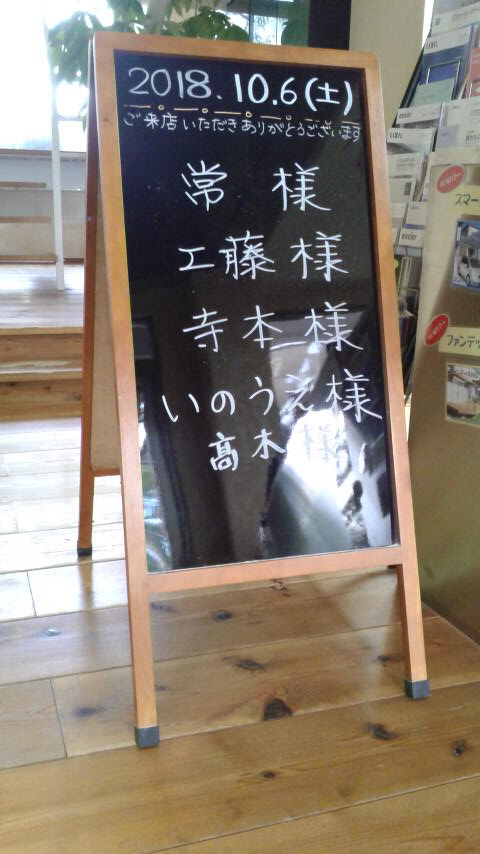 2018.10.6(土)
ご来店いただきありがとうございます
常 様
工藤 様
寺本 様
いのうえ様
髙木 様
LIXIL
スマー
ファンデッ